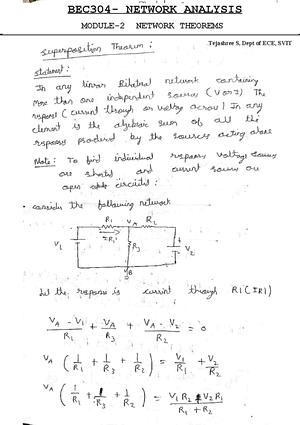 BEC304- NETWORK ANALYSIS
MODULE-2 NETWORK THEOREMS
Tejashree S, Dept of ECE, SVIT
Superposition Theorem :
Statement :
In any linear Bilateral network containing
More than one independent sources (V or I) The
response (current through or voltage across) In any
element is the algebraic sum of all the
responses produced by the sources acting alone
Note : To find individual response voltage sources
are shorted and current sources are
open circuited :
consider the following network
R1 VA R2
IR1
V1 R3 V2
VB
Let the response is current through R1 (IR1)
VA - V1 / R1 + VA / R3 + VA - V2 / R2 = 0
VA ( 1/R1 + 1/R3 + 1/R2 ) = V1/R1 + V2/R2
VA ( 1/R1 + 1/R3 + 1/R2 ) = V1 R2 + V2 R1 / R1 + R2